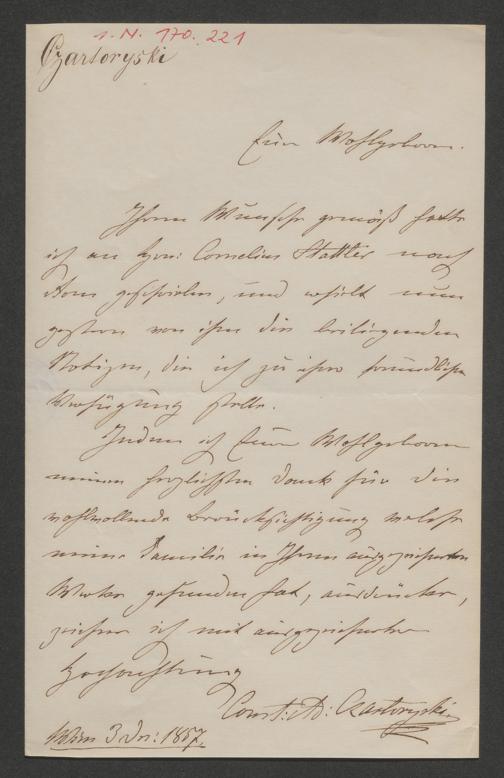 I. N. 170.221
Czartoryski
Euer Wohlgeboren.
Ihrem Wunsche gemäß hatte
ich an H: Cornelius Stattler nach
Rom geschrieben, und erhielt nun
gestern von ihm die beiliegenden
Notizen, die ich zu ihrer freundlichen
Verfügung stelle.
Indem ich Euer Wohlgeboren
meinen herzlichsten Dank für die
wohlwollende Berücksichtigung welche
meine Familie in Ihrem ausgezeichneten
Werke gefunden hat, ausdrücke,
zeichne ich mit ausgezeichneter
Hochachtung
Const: Ad: Czartoryski
Wien 3 1857.